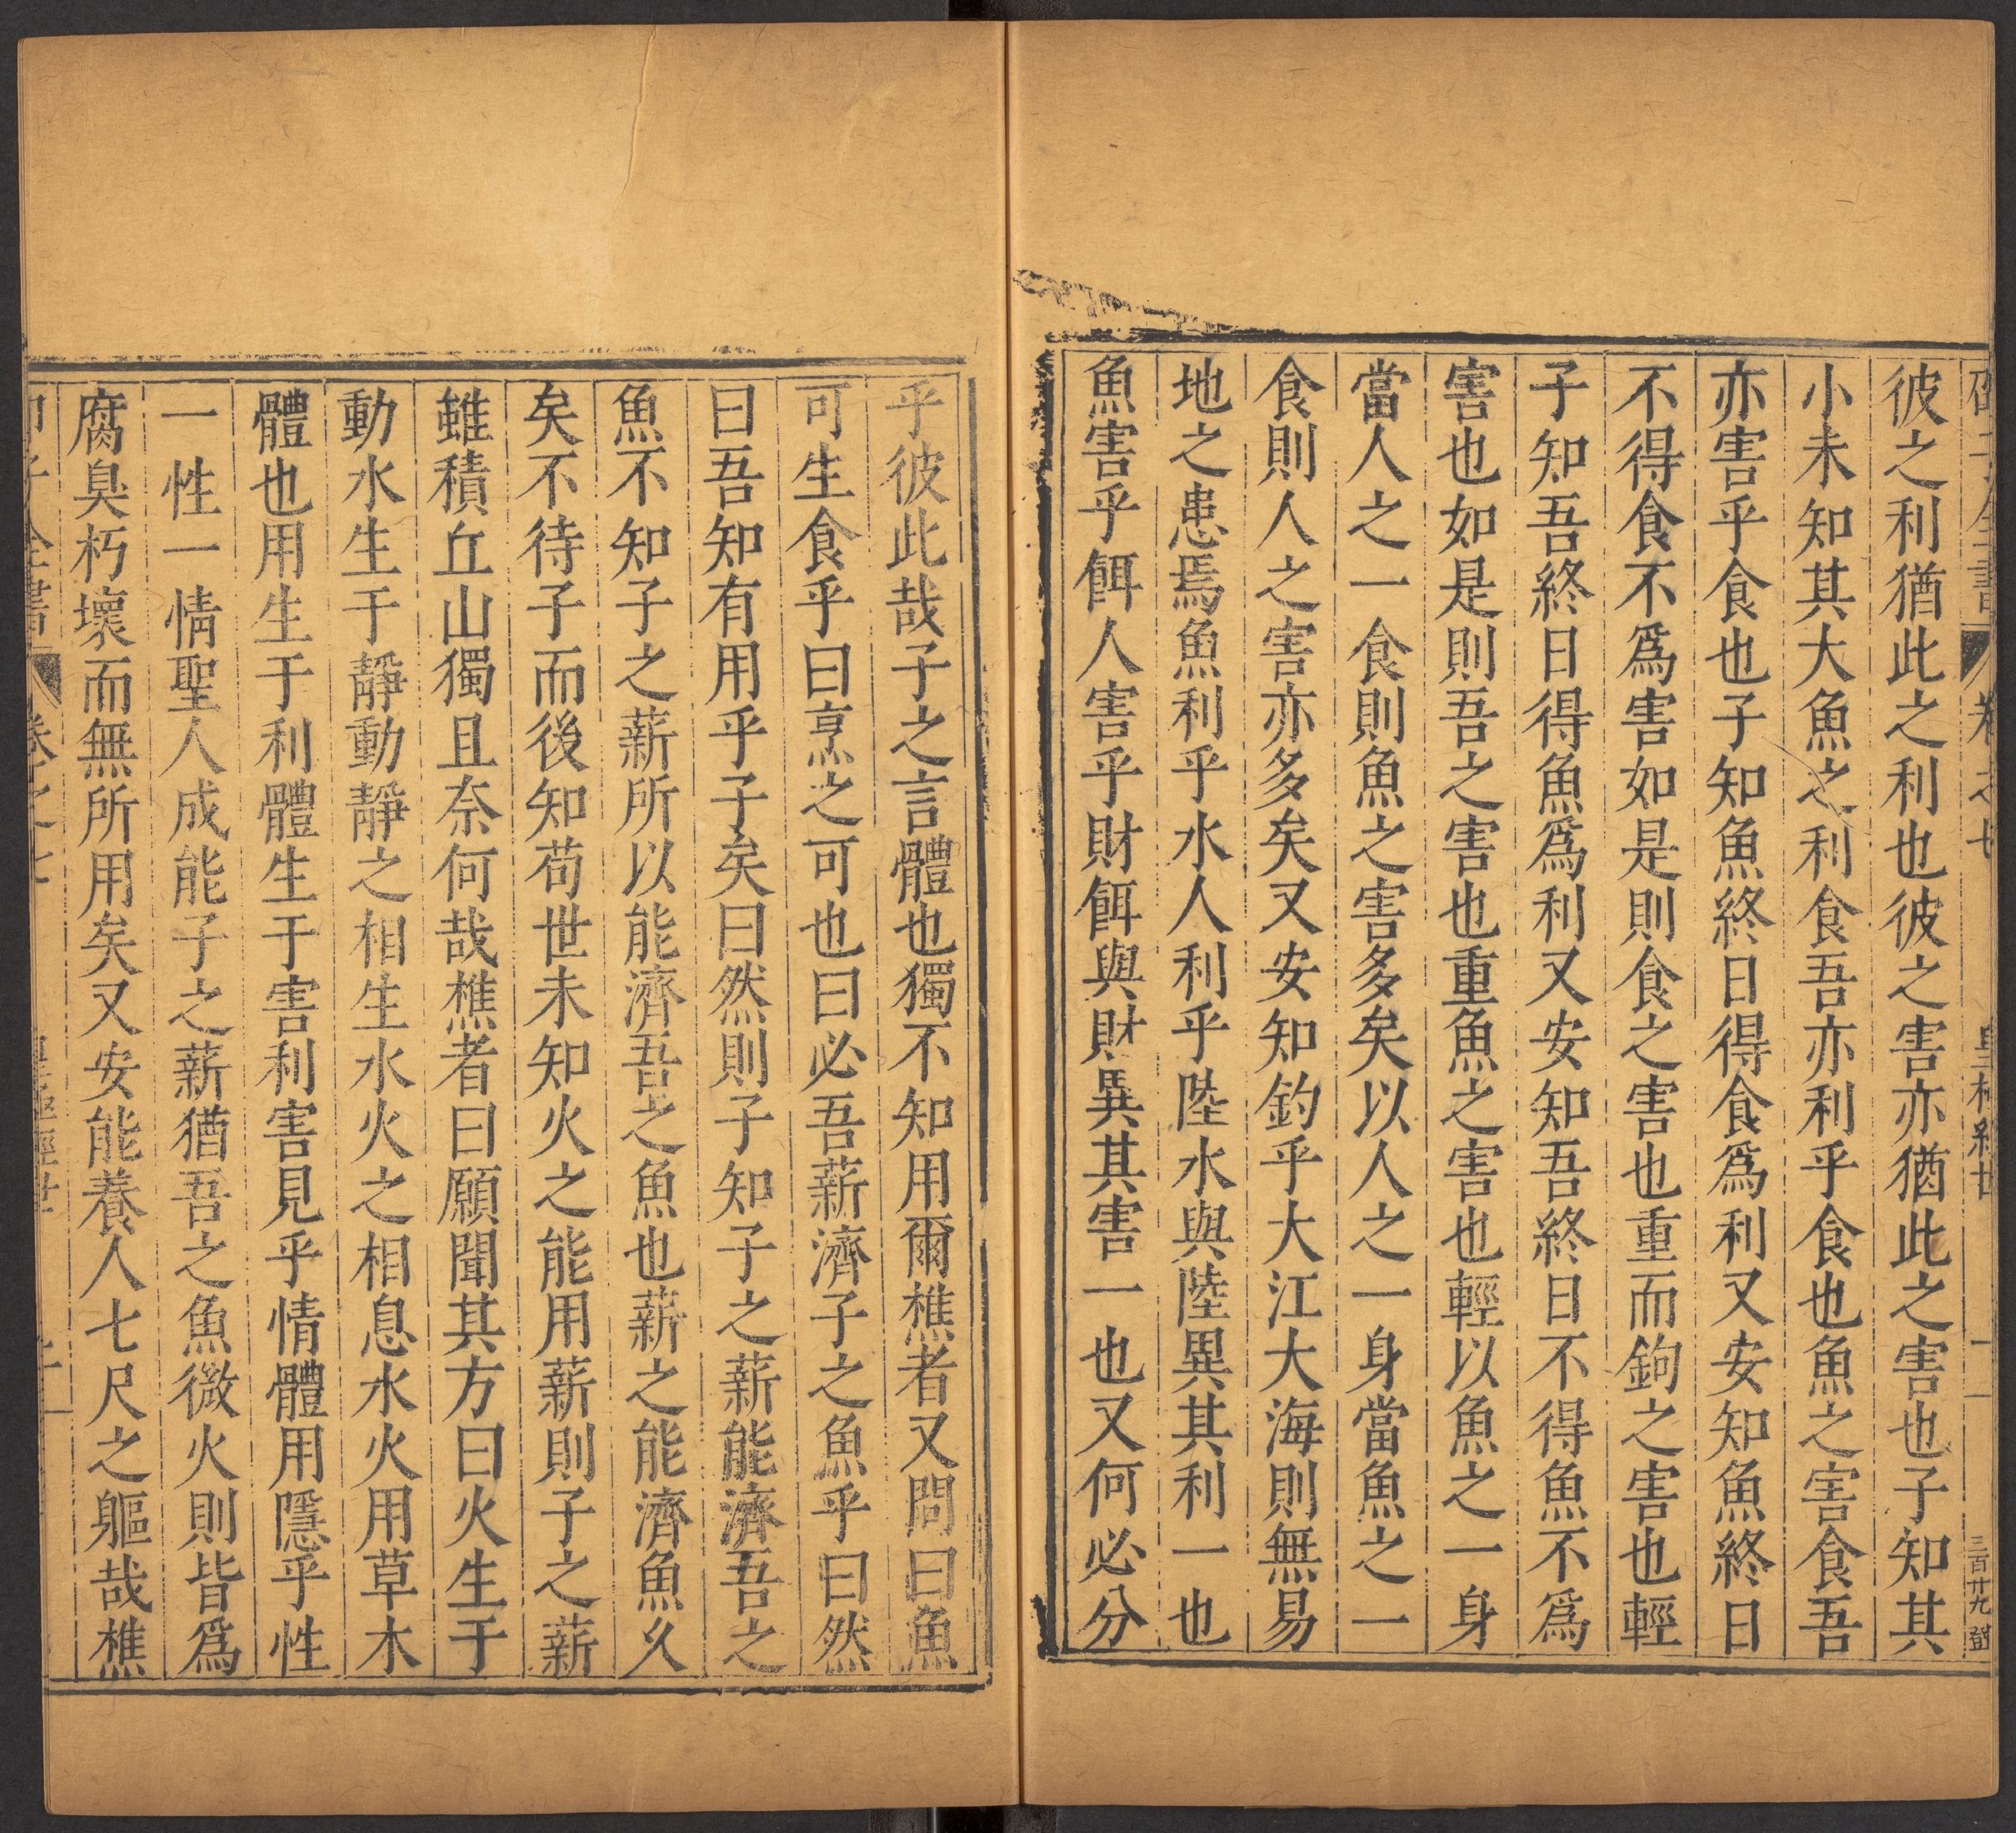 彼之利猶此之利也彼之害亦猶此之害也子知其
小未知其大魚之利食吾亦利乎食也魚之害食吾
亦害乎食也子知魚終日得食爲利又安知魚終日
不得食不爲害如是則食之害也重而鉤之害也輕
子知吾終日得魚爲利又安知吾終日不得魚不爲
害也如是則吾之害也重魚之害也輕以魚之一身
當人之一食則魚之害多矣以人之一身當魚之一
食則人之害亦多矣又安知釣乎大江大海則無易
地之患焉魚利乎水人利乎陸水與陸異其利一也
魚害乎餌人害乎財餌與財異其害一也又何必分
乎彼此哉子之言體也獨不知用爾樵者又問曰魚
可生食乎曰烹之可也曰必吾薪濟子之魚乎曰然
曰吾知有用乎子矣曰然則子知子之薪能濟吾之
魚不知子之薪所以能濟吾之魚也薪之能濟魚久
矣不待子而後知苟世未知火之能用薪則子之薪
雖積丘山獨且奈何哉樵者曰願聞其方曰火生于
動水生于靜動靜之相生水火之相息水火用草木
體也用生于利體生于害利害見乎情體用隱乎性
一性一情聖人成能子之薪猶吾之魚微火則皆爲
腐臭朽壞而無所用矣又安能養人七尺之軀哉樵
全書 卷之七